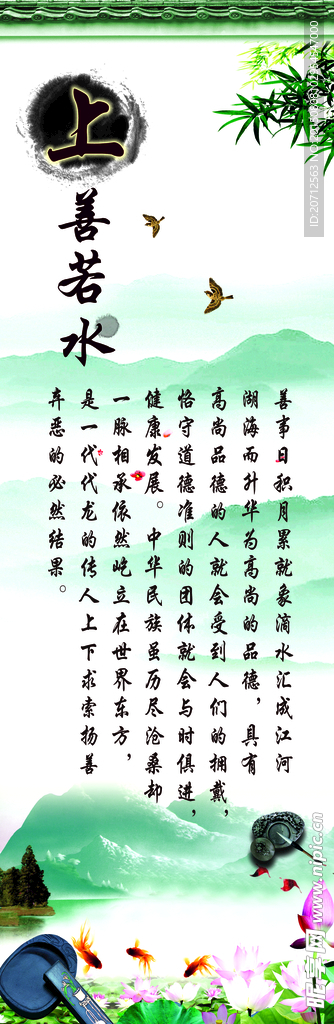 上善若水
善事日积月累就象滴水汇成江河
湖海而升华为高尚的品德，具有
高尚品德的人就会受到人们的拥戴，
恪守道德准则的团体就会与时俱进，
健康发展。中华民族虽历尽沧桑却
一脉相承依然屹立在世界东方，
是一代代龙的传人上下求索扬善
弃恶的必然结果。
昵享网 www.nipic.cn